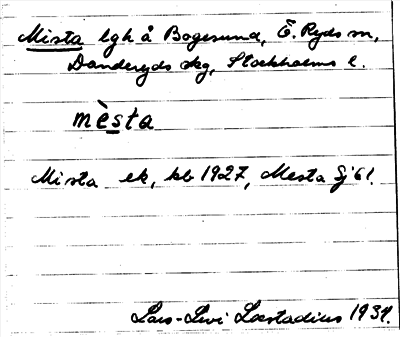 Mista lgh å Bogesund, Ö. Ryds sn,
Danderyds skg, Stockholms l.
mèsta
Mista ek, kb 1927, Mesta Sj 61.
Lars-Levi Læstadius 1934.